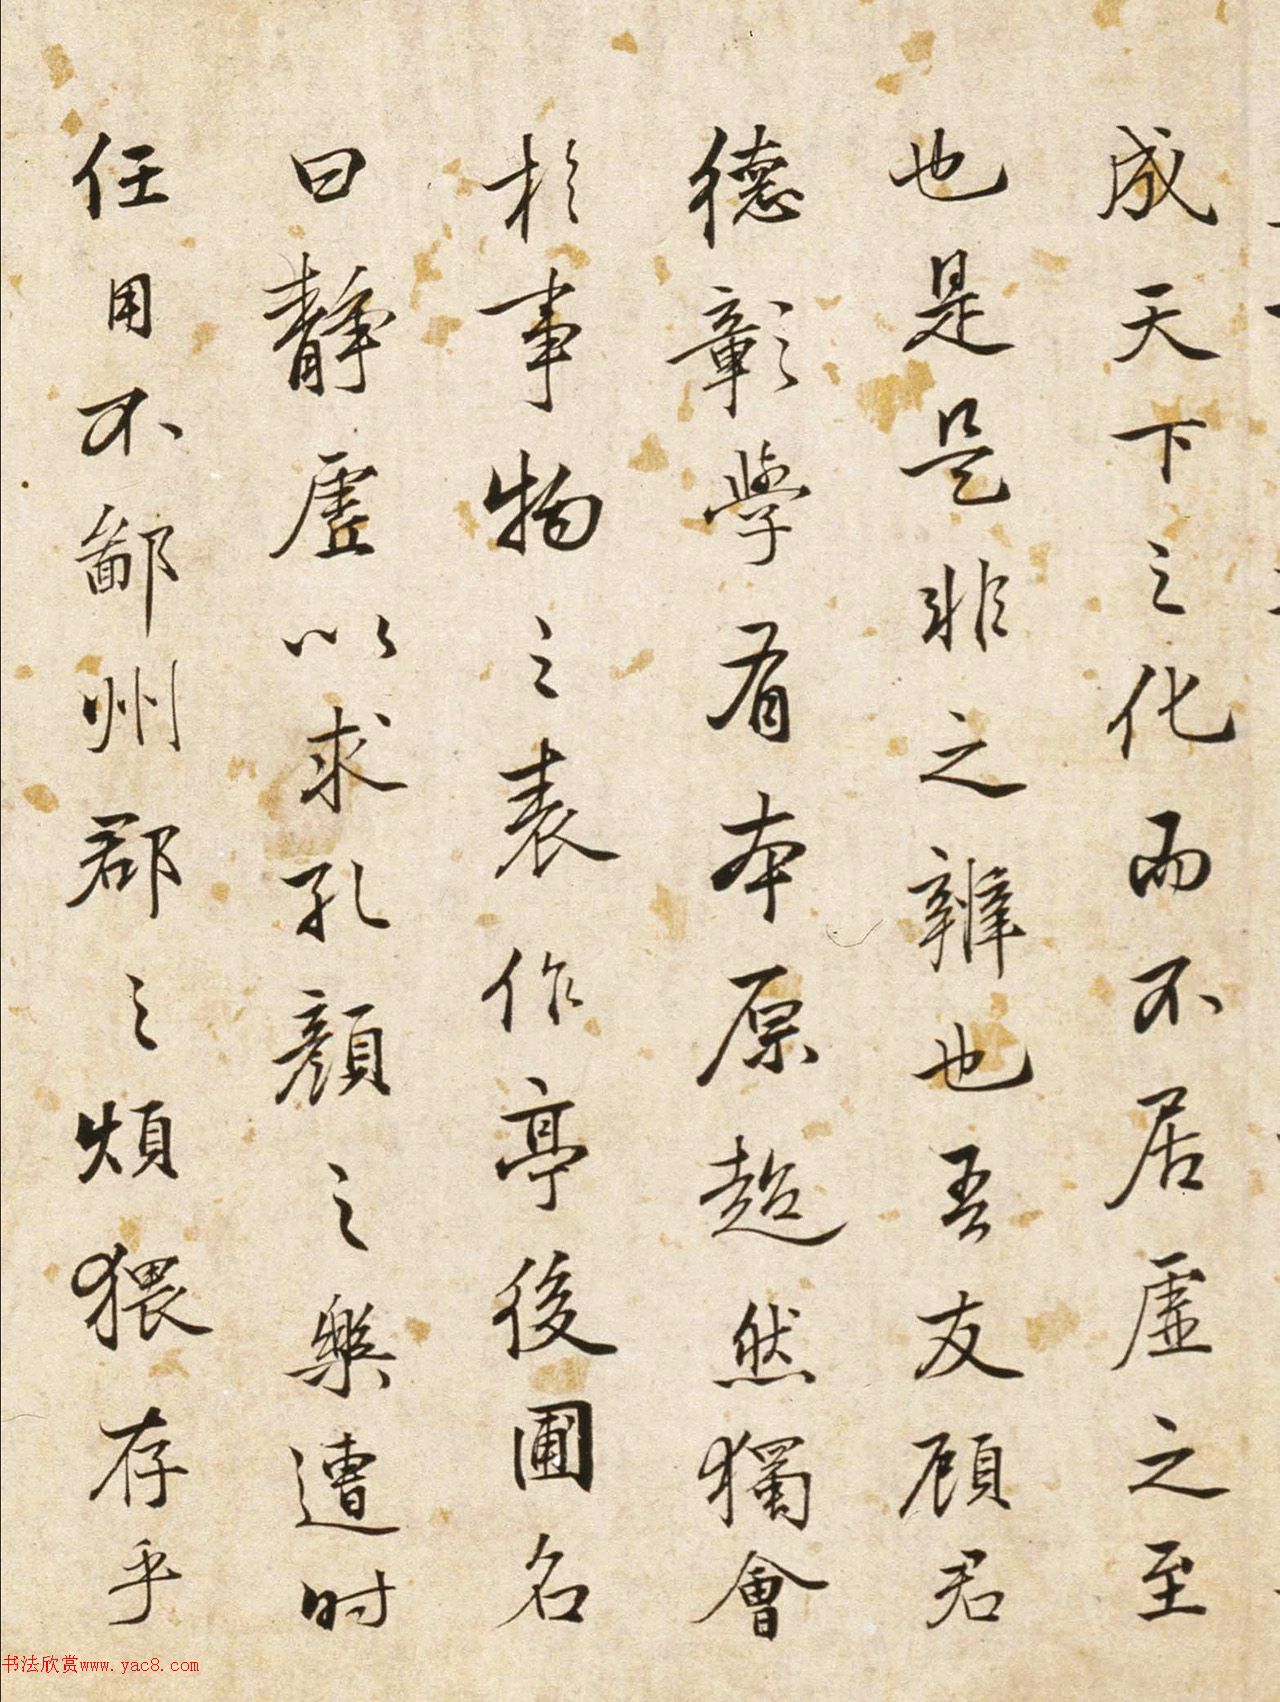 成天下之化而不居虛之至
也是是非之辨也吾友顧君
德彰學有本原超然獨會
於事物之表作亭後圃名
曰靜虛以求孔顏之樂遭時
任用不鄙州郡之煩猥存乎
书法欣赏www.yac8.com